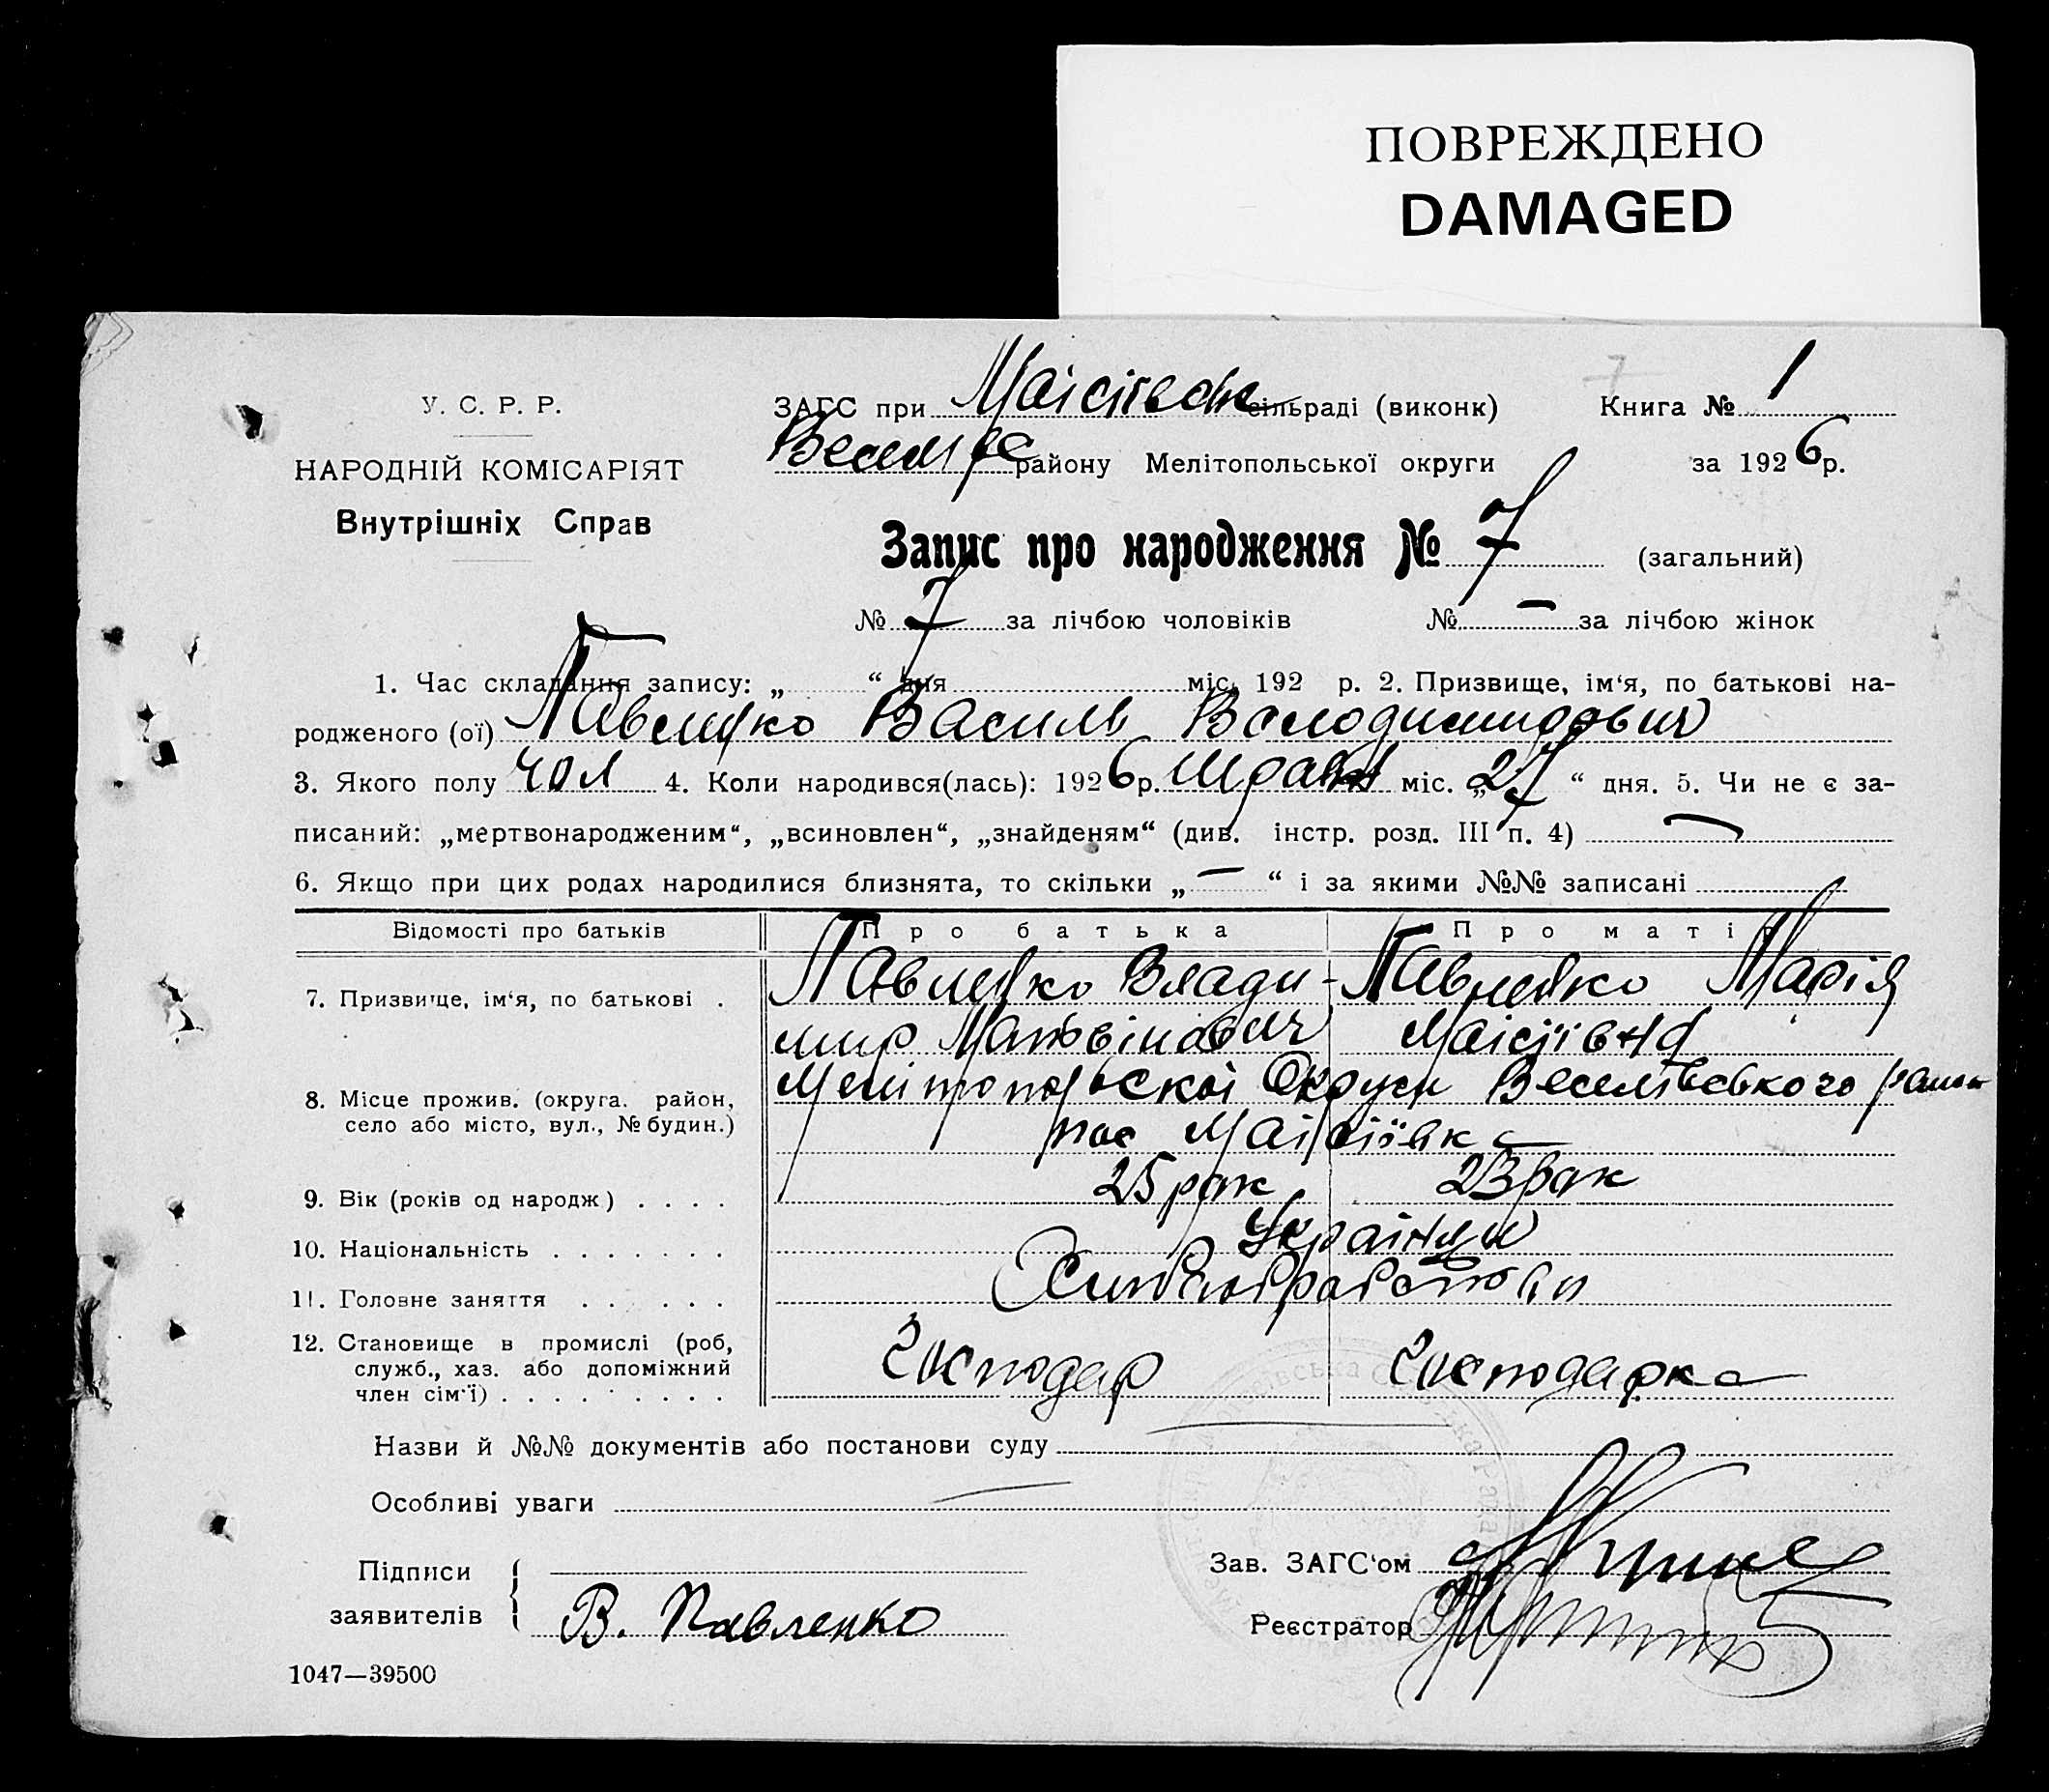 ПОВРЕЖДЕНО
DAMAGED
У. С. Р. Р.
НАРОДНІЙ КОМІСАРІЯТ
Внутрішніх Справ
ЗАГС при сільраді (виконк) Книга № 1
району Мелітопольської округи за 1926 р.
Запис про народження № 7 (загальний)
№ 7 за лічбою чоловіків № — за лічбою жінок
1. Час складання запису: „ “ дня міс. 192 р. 2. Призвище, ім‘я, по батькові на-
родженого (ої) Павленко Василь Володимирович
3. Якого полу чол 4. Коли народився(лась): 1926 р. травня міс. „27“ дня. 5. Чи не є за-
писаний: „мертвонародженим“, „всиновлен“, „знайденям“ (див. інстр. розд. III п. 4) —
6. Якщо при цих родах народилися близнята, то скільки „—“ і за якими №№ записані
Відомості про батьків Про батька Про матір
7. Призвище, ім‘я, по батькові . Павленко Влади- Павленко Марія
мир Матвійович Маісіївна
8. Місце прожив. (округа. район, село або місто, вул., № будин.) Мелітопольскоі Округи Веселівського
пос Маісіївка
9. Вік (років од народж) . . . . 25 рок 23 рок
10. Національність . . . . . . . Українци
11. Головне заняття . . . . . .
12. Становище в промислі (роб, служб., хаз. або допоміжний член сім‘ї) . . . . . . . . . Господар Господарка
Назви й №№ документів або постанови суду
Особливі уваги
Підписи заявителів В. Павленко
Зав. ЗАГС‘ом
Реєстратор
1047—39500